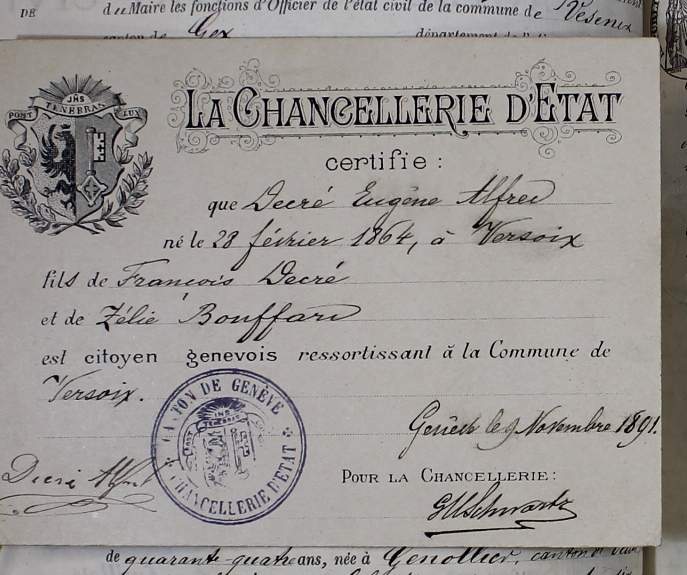 DE
du Maire les fonctions d'Officier de l'état civil de la commune de Vesenex
canton de Gex département de l'
JHS
POST TENEBRAS LUX
LA CHANCELLERIE D'ETAT
certifie :
que Decré Eugène Alfred
né le 28 février 1864, à Versoix
fils de François Decré
et de Zélie Bouffard
est citoyen genevois ressortissant à la Commune de
Versoix.
CANTON DE GENÈVE
CHANCELLERIE D'ETAT
Genève le 9 Novembre 1891.
Decré Alfred
POUR LA CHANCELLERIE :
Schwartz
de quarante-quatre ans, née à Genollier, canton de Vaud